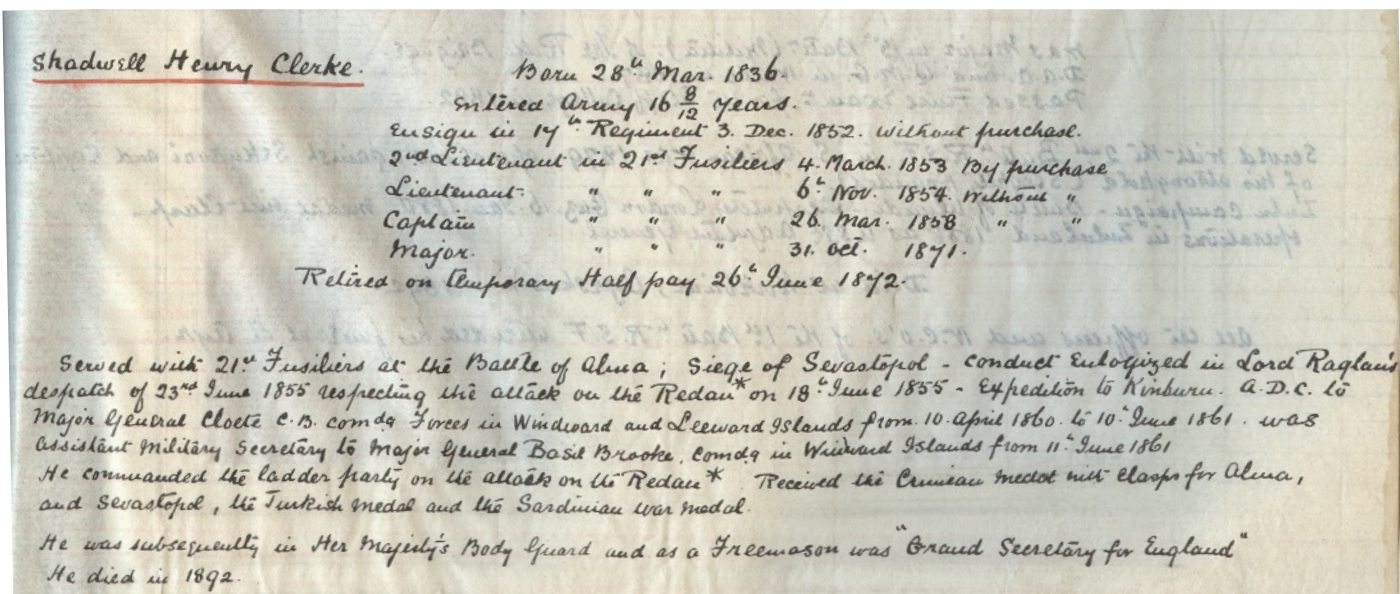 Shadwell Henry Clerke.
Born 28th Mar. 1836.
Entered Army 16 8/12 years.
Ensign in 17th Regiment 3. Dec. 1852. without purchase.
2nd Lieutenant in 21st Fusiliers 4. March. 1853 By purchase
Lieutenant " " " 6th Nov. 1854. Without "
Captain " " " 26. Mar. 1858 " "
Major. " " " 31. Oct. 1871.
Retired on temporary Half pay 26th June 1872.
Served with 21st Fusiliers at the Battle of Alma; Siege of Sevastopol - conduct Eulogized in Lord Raglan's
despatch of 23rd June 1855 respecting the attack on the Redan* on 18th June 1855 - Expedition to Kinburn. A.D.C. to
Major General Cloete C.B. comdg Forces in Windward and Leeward Islands from 10. April 1860. to 10th June 1861. was
Assistant Military Secretary to Major General Basil Brooke, comdg in Windward Islands from 11th June 1861
He commanded the ladder party on the attack on the Redan* Received the Crimean medal with clasps for Alma,
and Sevastopol, the Turkish medal and the Sardinian war medal.
He was subsequently in Her Majesty's Body Guard and as a Freemason was "Grand Secretary for England"
He died in 1892.